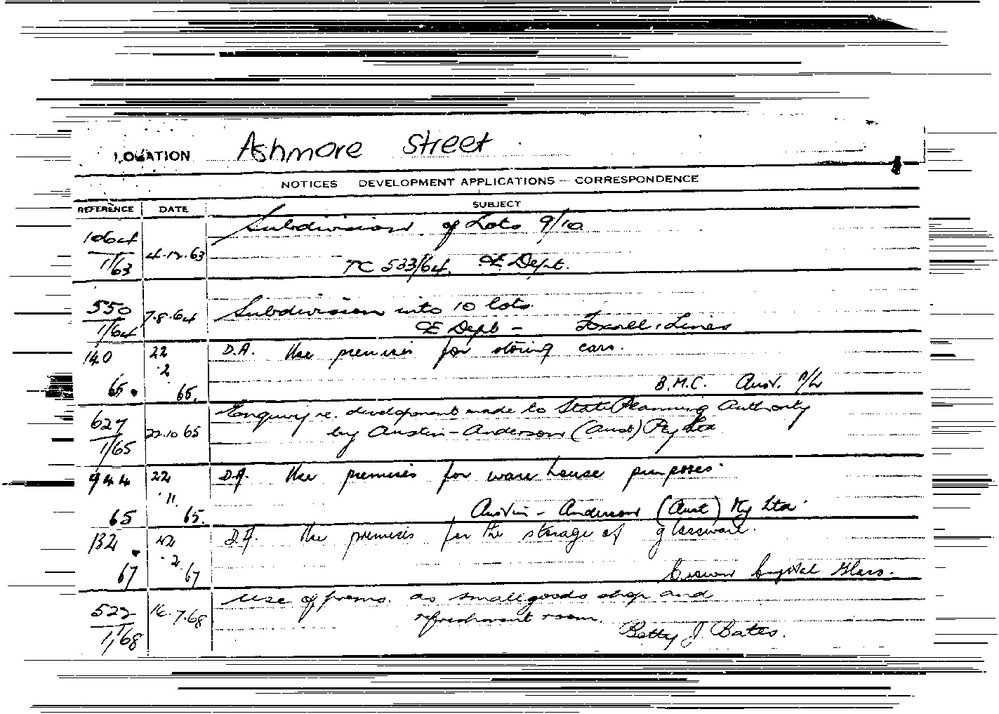 LOCATION Ashmore Street
NOTICES DEVELOPMENT APPLICATIONS — CORRESPONDENCE
REFERENCE DATE SUBJECT
1064 1/63 4.12.63 Subdivision of Lots 9/10
TC 533/64. Dept.
550 1/64 7.8.64 Subdivision into 10 lots
Dept - Lines
140 65. 22 2 65. D.A. Use premises for storing cars.
B.M.C. Aust. P/L
627 1/65 22.10 65 Enquiry re. development made to State Planning Authority
by Austin-Anderson (Aust) Pty Ltd
944 65 22 11 65. D.A. Use premises for ware house purposes.
Austin - Anderson (Aust) Pty Ltd
132 67 2 67 D.A. Use premises for the storage of glassware.
Crown Crystal Glass.
522 1/68 16.7.68 Use of prems. as smallgoods shop and
refreshment room.
Betty J Bates.